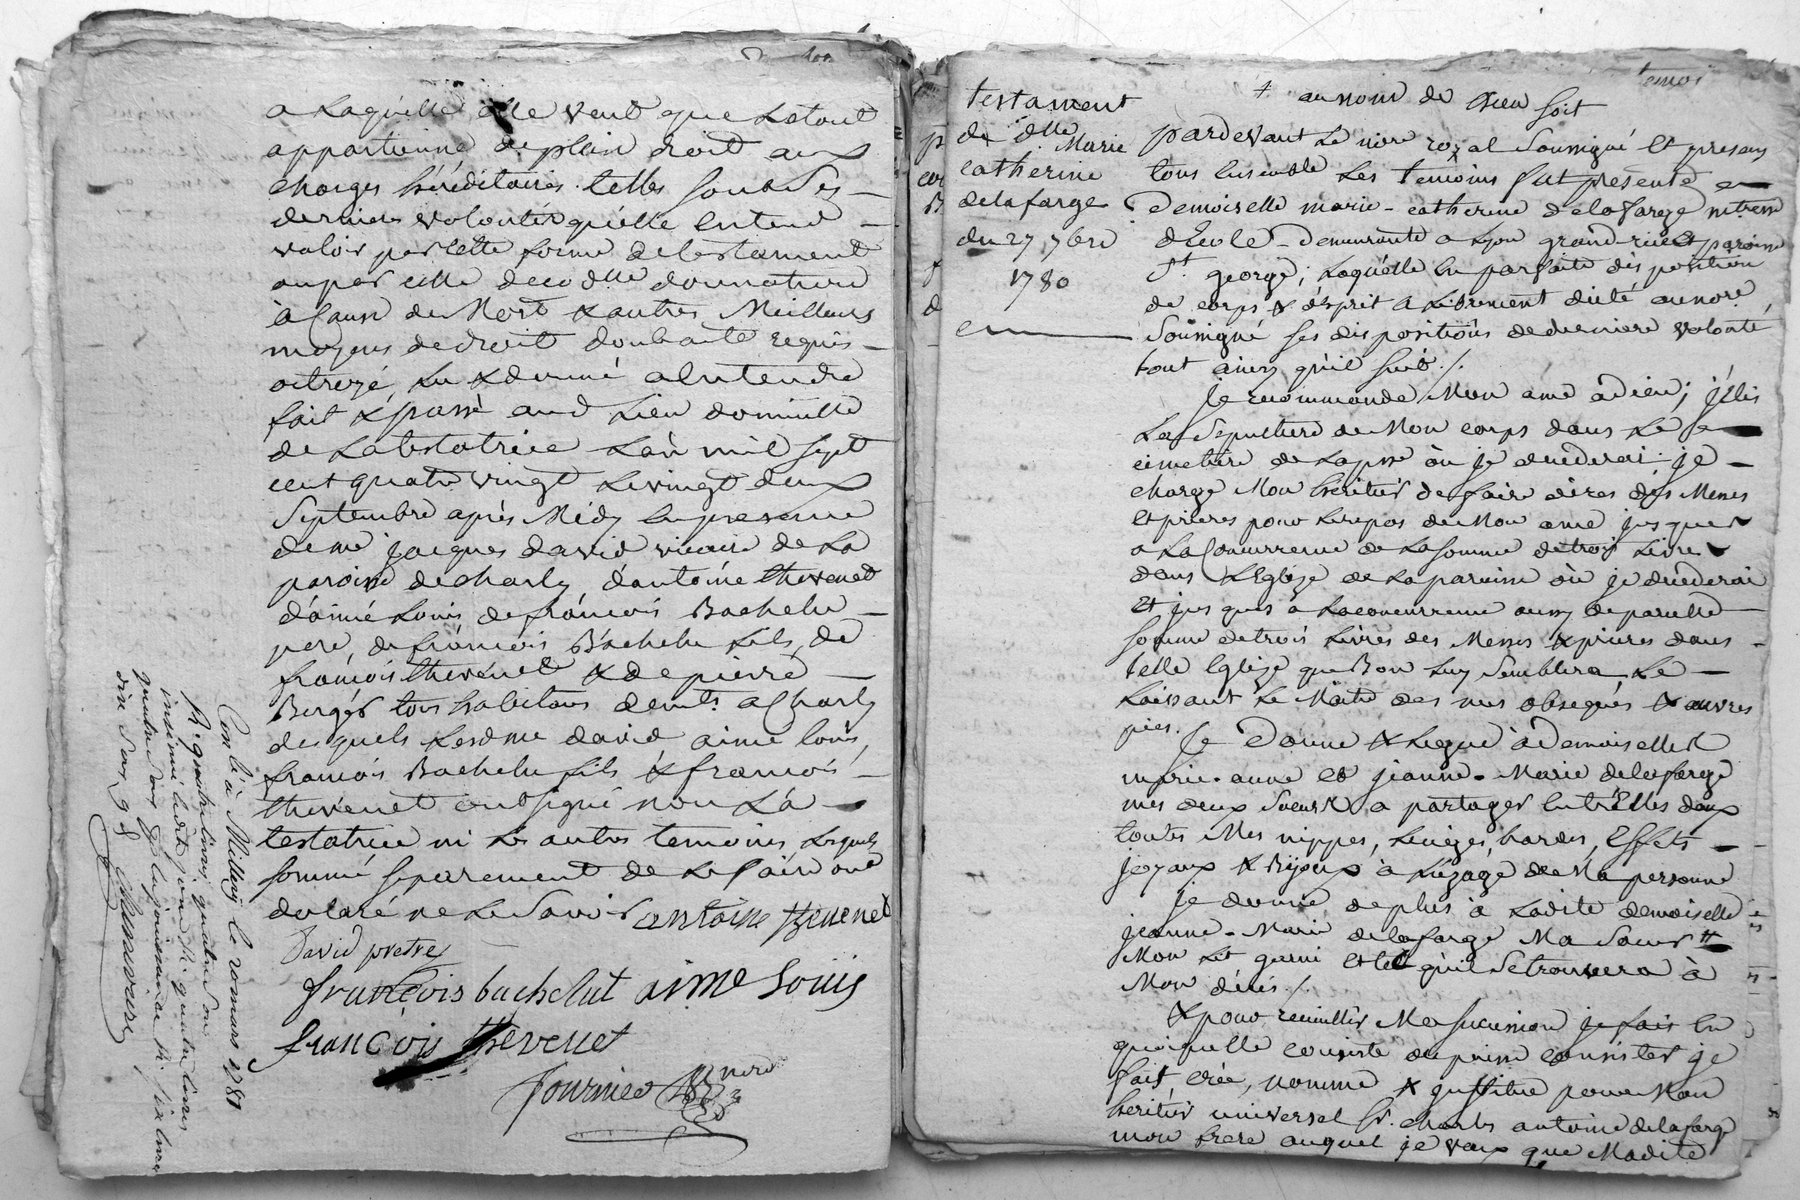 a Laquelle elle veut que Letout
appartienne de plein droit aux
charges héréditaires. telles sont Ses
dernieres volontés qu'elle entend
valoir par cette forme de testament
ou par celle de codlle donnation
à Cause de Mort & autres Meilleurs
moyens de droit dont acte requis
octroyé, Lu & donné a Entendre
fait & passé aud Lieu domicille
de Latestatrice L'an mil sept
cent quatre vingt Le vingt deux
Septembre après Midy En presence
de me jacques david vicaire de La
paroisse de charly d'antoine thevenet
d'aimé Louis de françois Bachelu
pere, de françois Bachelu fils, de
françois thevenet & de pierre
Berger tous habitans demts. a Charly
desquels Lesd me david aimé louis,
françois Bachelu fils & françois
thevenet ont signé non La
testatrice ni Les autres temoins Lesquels
sommé separement de Le faire ont
declaré ne Le Savoir antoine thevenet
David pretre
françois bachelut aime Louis
françois thevenet
fournier nore
Con lé à Millery le 10 mars 1781
R. quatre livres quatre
quatre livres
dix sous
testament
de dlle Marie
catherine
delafarge
du 27 7bre
1780
temoi
au nom de dieu soit
pardevant Le nore royal Soussigné Et presens
tous Ensemble Les temoins fut presente
Demoiselle marie-catherine delafarge mtresse
d'Ecole Demeurante a Lyon grand rue & paroisse
St. george; Laquelle En parfaite disposition
de corps & d'esprit a Librement dicté au nore
Soussigné ses dispositions de derniere volonté
tout ainsy qu'il suit ./.
Je recommande Mon ame à dieu; j'Elis
La Sepulture de Mon corps dans Le
cimetiere de La psse où je decederai: je
charge Mon heritier de faire dires des Messes
Et prieres pour Le repos de Mon ame jusques
a La Concurrence de La somme de trois Livres
dans L'Eglize de La paroisse où je decederai
Et jusques a La concurrence aussy de pareille
somme de trois Livres des Messes & prieres dans
telle Eglize que Bon Luy Semblera Le
Laissant Le Maitre de mes obseques & œuvres
pies.
Je Donne & Legue à Demoiselles
marie-anne et jeanne-Marie delafarge
mes deux Sœurs a partager Entr'Elles deux
toutes Mes nippes, Linges, hardes, Effets
joyaux & Bijoux à L'uzage de Ma personne
Je donne de plus à Ladite demoiselle
jeanne-Marie delafarge Ma Sœur
Mon Lit garni Et tel qu'il Se trouvera à
Mon décès ./.
& pour recueillir Ma succession je fais En
quoiquelle consiste ou puisse consister je
fait, crée, nomme & institue pour Mon
heritier universel Sr. charles antoine delafarge
mon frere auquel je veux que Madite